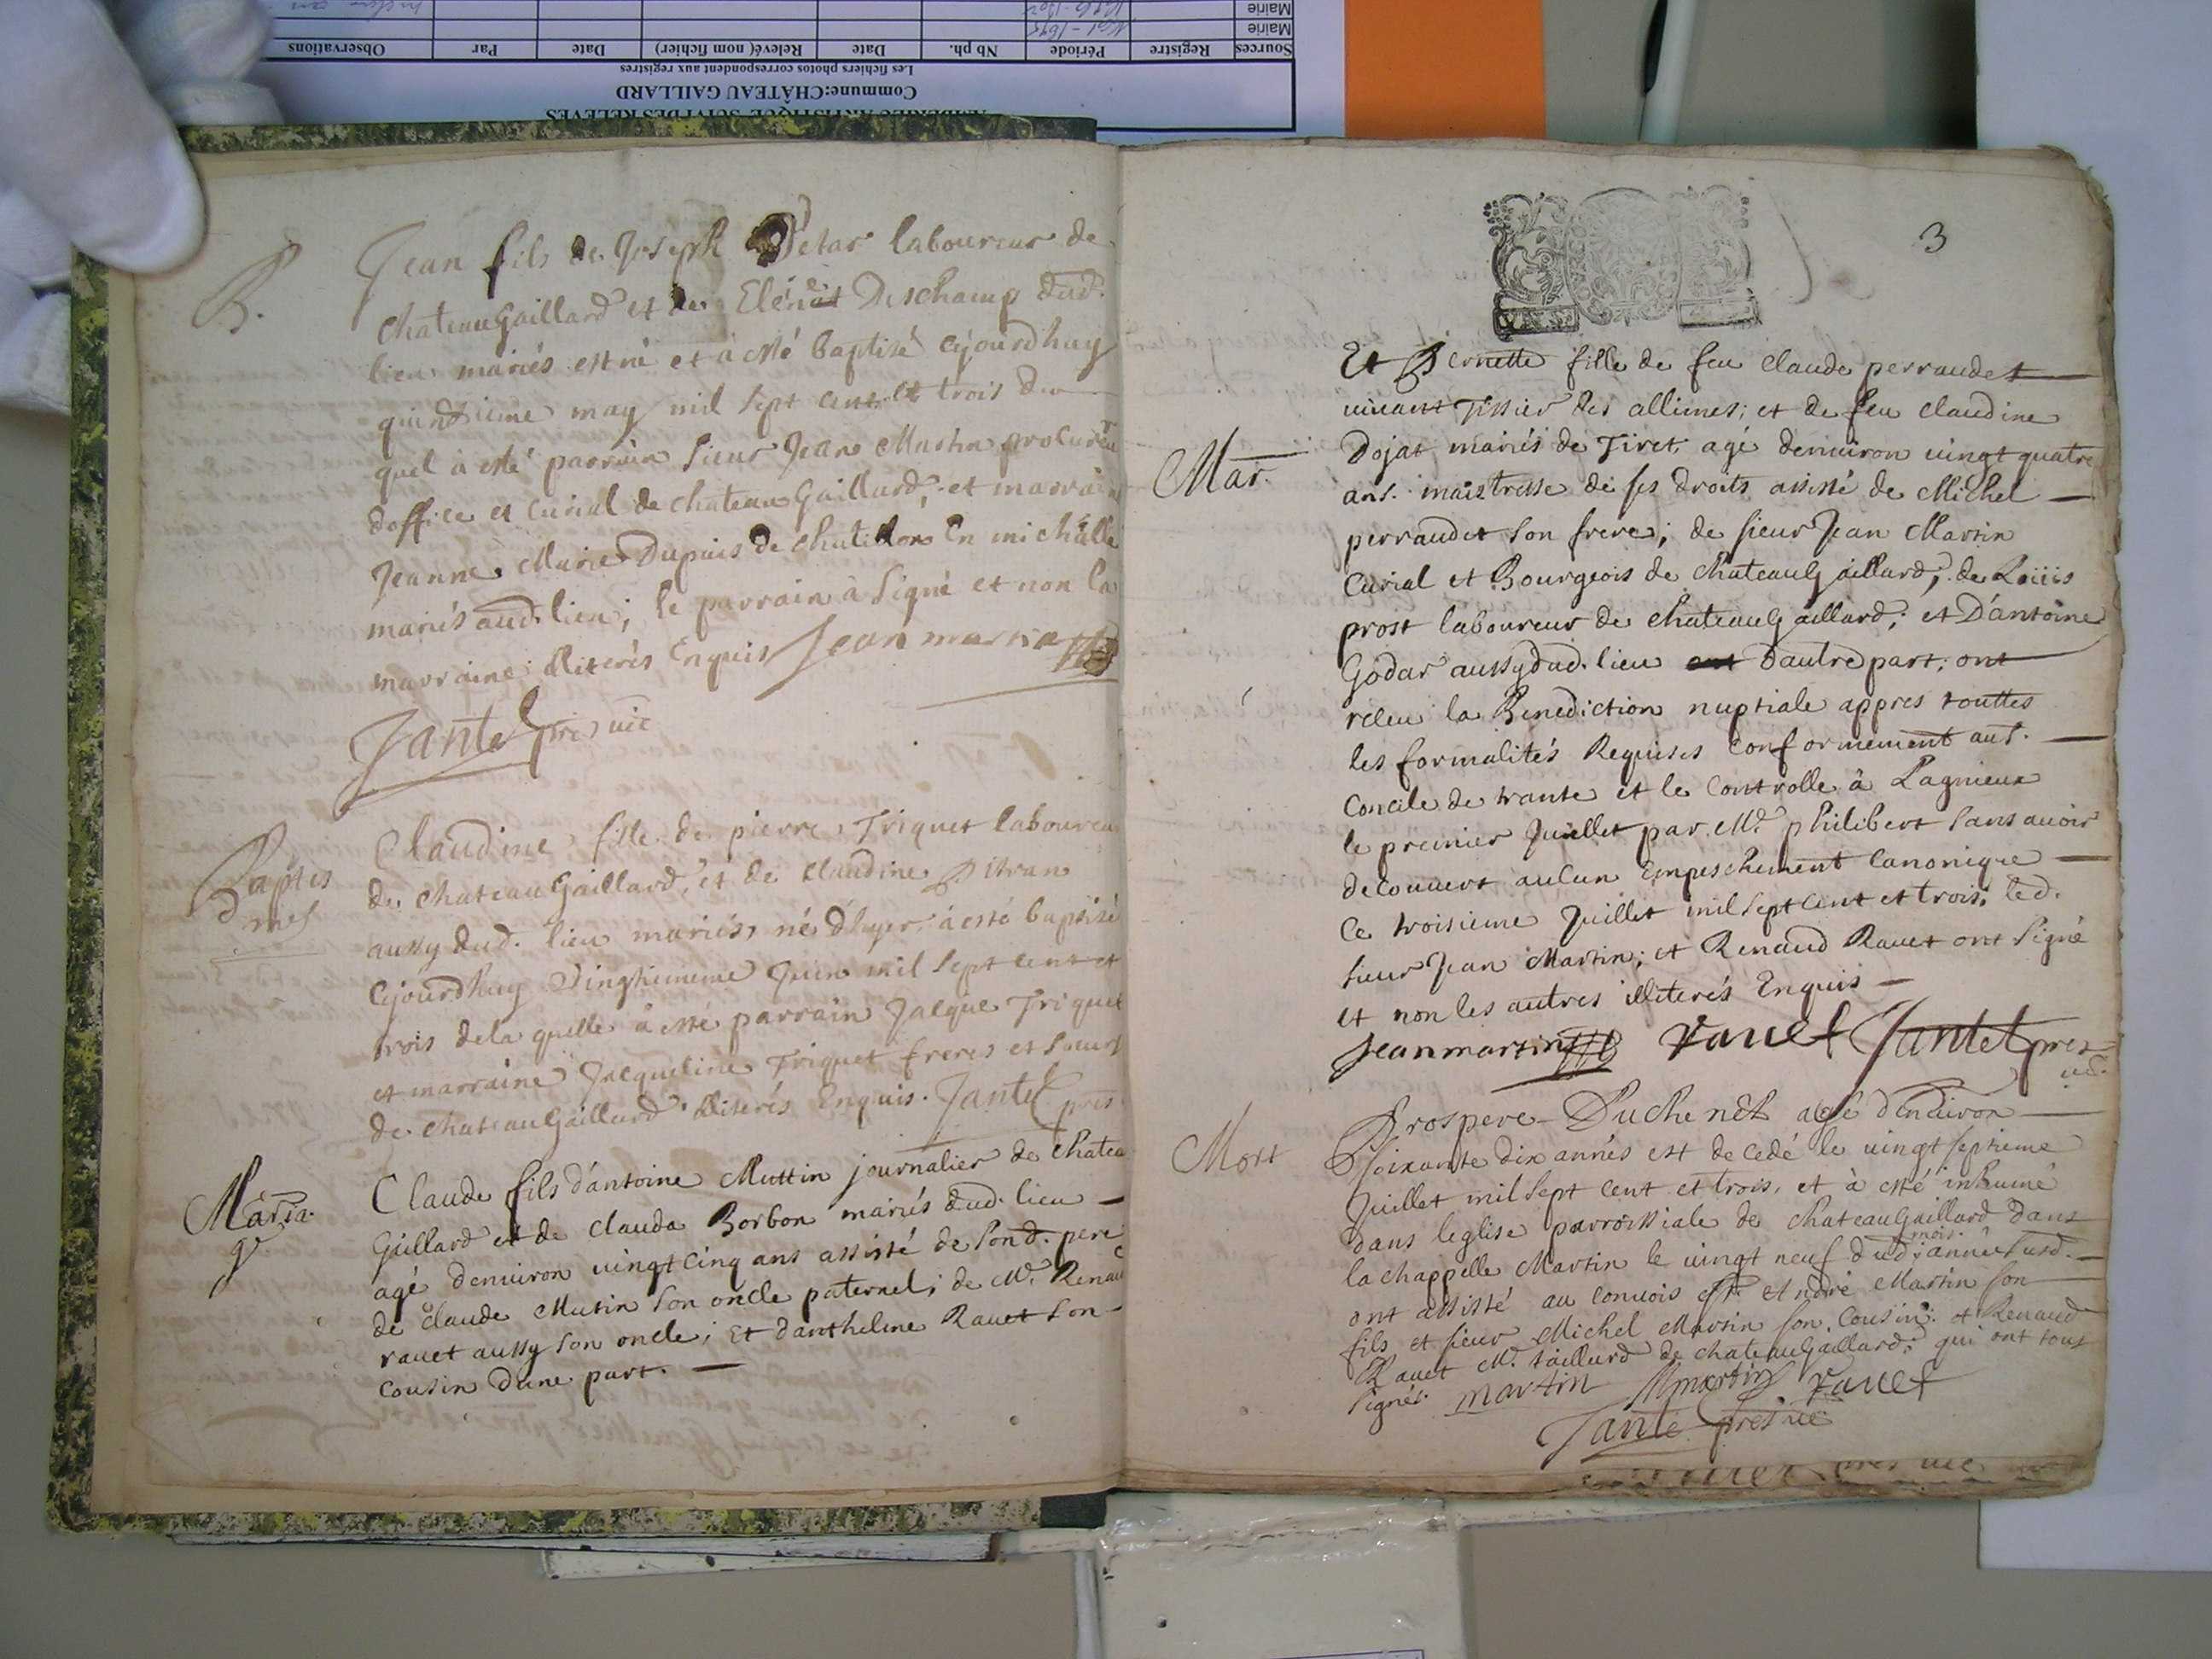 AMBERIEU ARTISTIQUE SUIVI DES RELEVES
Commune:CHÂTEAU GAILLARD
Les fichiers photos correspondent aux registres
Sources Registre Période Nb ph. Date Relevé( nom fichier) Date Par Observations
Mairie
Mairie
B.
Jean fils de Joseph Petar laboureur de
chateauGaillard et de Deschamp dud.
lieu mariés est né et à esté baptisé cejourdhuy
quinzieme may mil sept cent et trois du
quel à esté parrain sieur Jean Martin procureur
doffice et Curial de chateau Gaillard; et marraine
Jeanne Marie Dupuis de chatillon En michaille
mariés aud. lieu; le parrain à Signé et non la
marraine illiterés Enquis Jean martin
Jantet pre vic
Baptes
mes
Claudine fille de pierre Triquet laboureu
de chateauGaillard, et de claudine Pitran
aussy dud. lieu mariés, né d'hyer, à esté baptisé
cejourdhuy Juin mil sept cent et
trois dela quelle à esté parrain Jaque Triquet
et marraine Jacqueline Triquet freres et soeurs
de chateauGaillard illiterés Enquis. Jantet pres
Maria
ge
Claude fils d'antoine Muttin journalier de chateau
Gaillard et de clauda Borbon mariés dud. lieu
agé denuiron uingt cinq ans assisté de sond. pere
de claude Mutin son oncle paternel; de Mr. Renau
rauet aussy son oncle; et danthelme Rauet son
cousin dune part.
3
Mar.
Et Pernette fille de feu claude perraudet
uiuant Tissier des allimes; et de feu claudine
Dojat mariés de Tiret; agé denuiron uingt quatre
ans. maistresse de ses droits assisté de Michel
perraudet son frere; de sieur Jean Martin
Curial et Bourgeois de chateauGaillard; de Loüis
prost laboureur de chateauGaillard; et D'antoine
Godar aussy dud. lieu dautre part; ont
receu la Benediction nuptiale appres touttes
les formalités Requises conformement au S.
Concile de trante et le Controlle à Lagnieux
le premier Juillet par Mr. philibert sans auoir
decouuert aucun Empeschement Canonique
ce troisieme Juillet mil sept cent et trois, led.
sieur Jean Martin; et Renaud Rauet ont signé
et non les autres illiterés Enquis
Jean martin rauet Jantet pres
uic.
Mort
Prospere Duchenêt agé d'Enuiron
soixante dix annés est decedé le uingt septieme
Juillet mil sept cent et trois, et à esté inhumé
dans leglise parroissiale de chateauGaillard dans
la chappelle Martin le uingt neuf dud. mois. année susd.
ont assisté au conuois sr. André Martin son
fils et sieur Michel Martin son Cousin; et Renaud
Rauet Mr. taillard de chateauGaillard; qui ont tous
signés. martin Mmartin rauet
Jantet pres uic